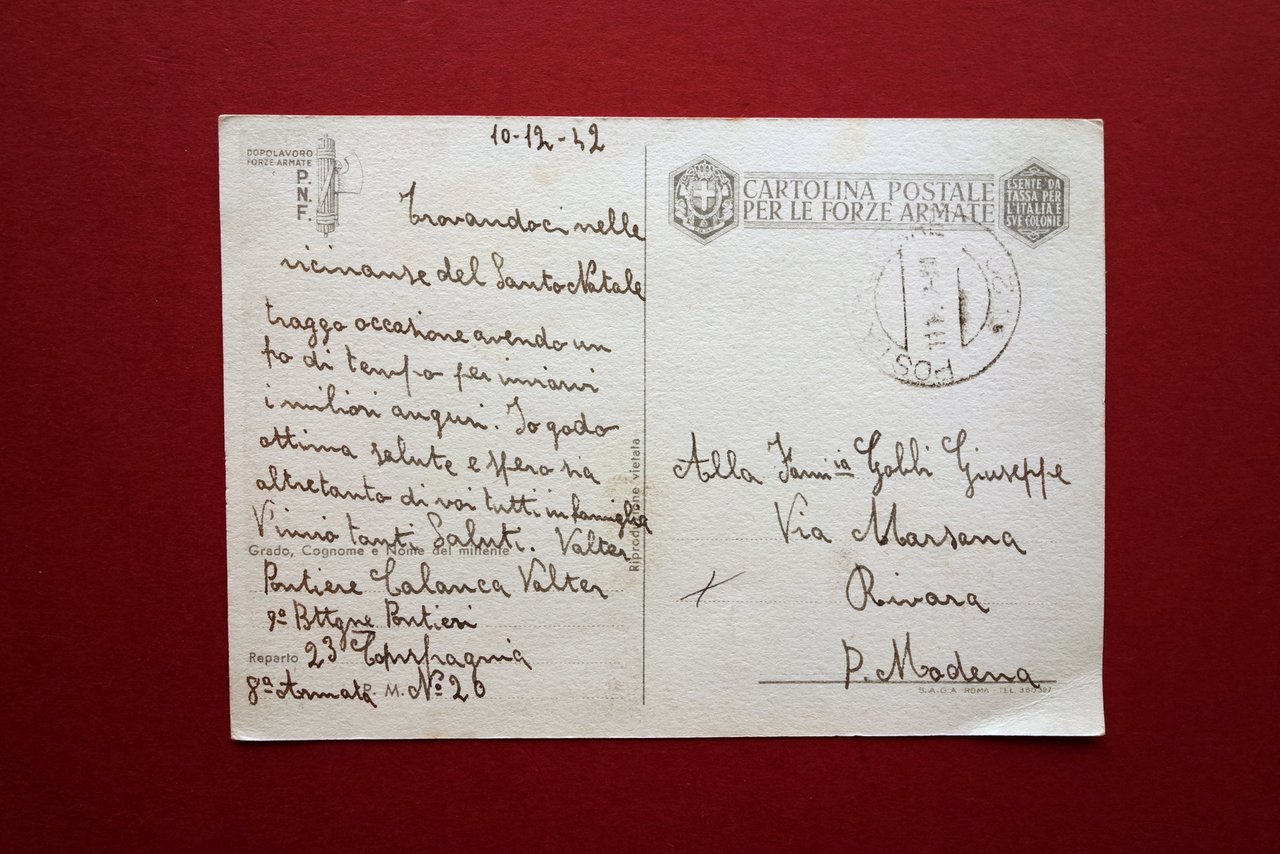 10-12-42
DOPOLAVORO
FORZE ARMATE
P.
N.
F.
Trovandoci nelle
vicinanse del Santo Natale
traggo occasione avendo un
po di tempo per inviarvi
i miliori auguri. Io godo
ottima salute e spero sia
altretanto di voi tutti in famiglia
Vinvio tanti Saluti. Valter
Grado, Cognome e Nome del mittente
Pontiere Calanca Valter
9º Bttgne Pontieri
Reparto 23 Compagnia
8ª Armata P. M. Nº 20
Riproduzione vietata
CARTOLINA POSTALE
PER LE FORZE ARMATE
ESENTE DA
TASSA PER
L'ITALIA E
SVE COLONIE
POSTA
Alla Famia Gobbi Giuseppe
Via Marsana
Rivara
P. Modena
S.A.G.A. ROMA - TEL. 360397